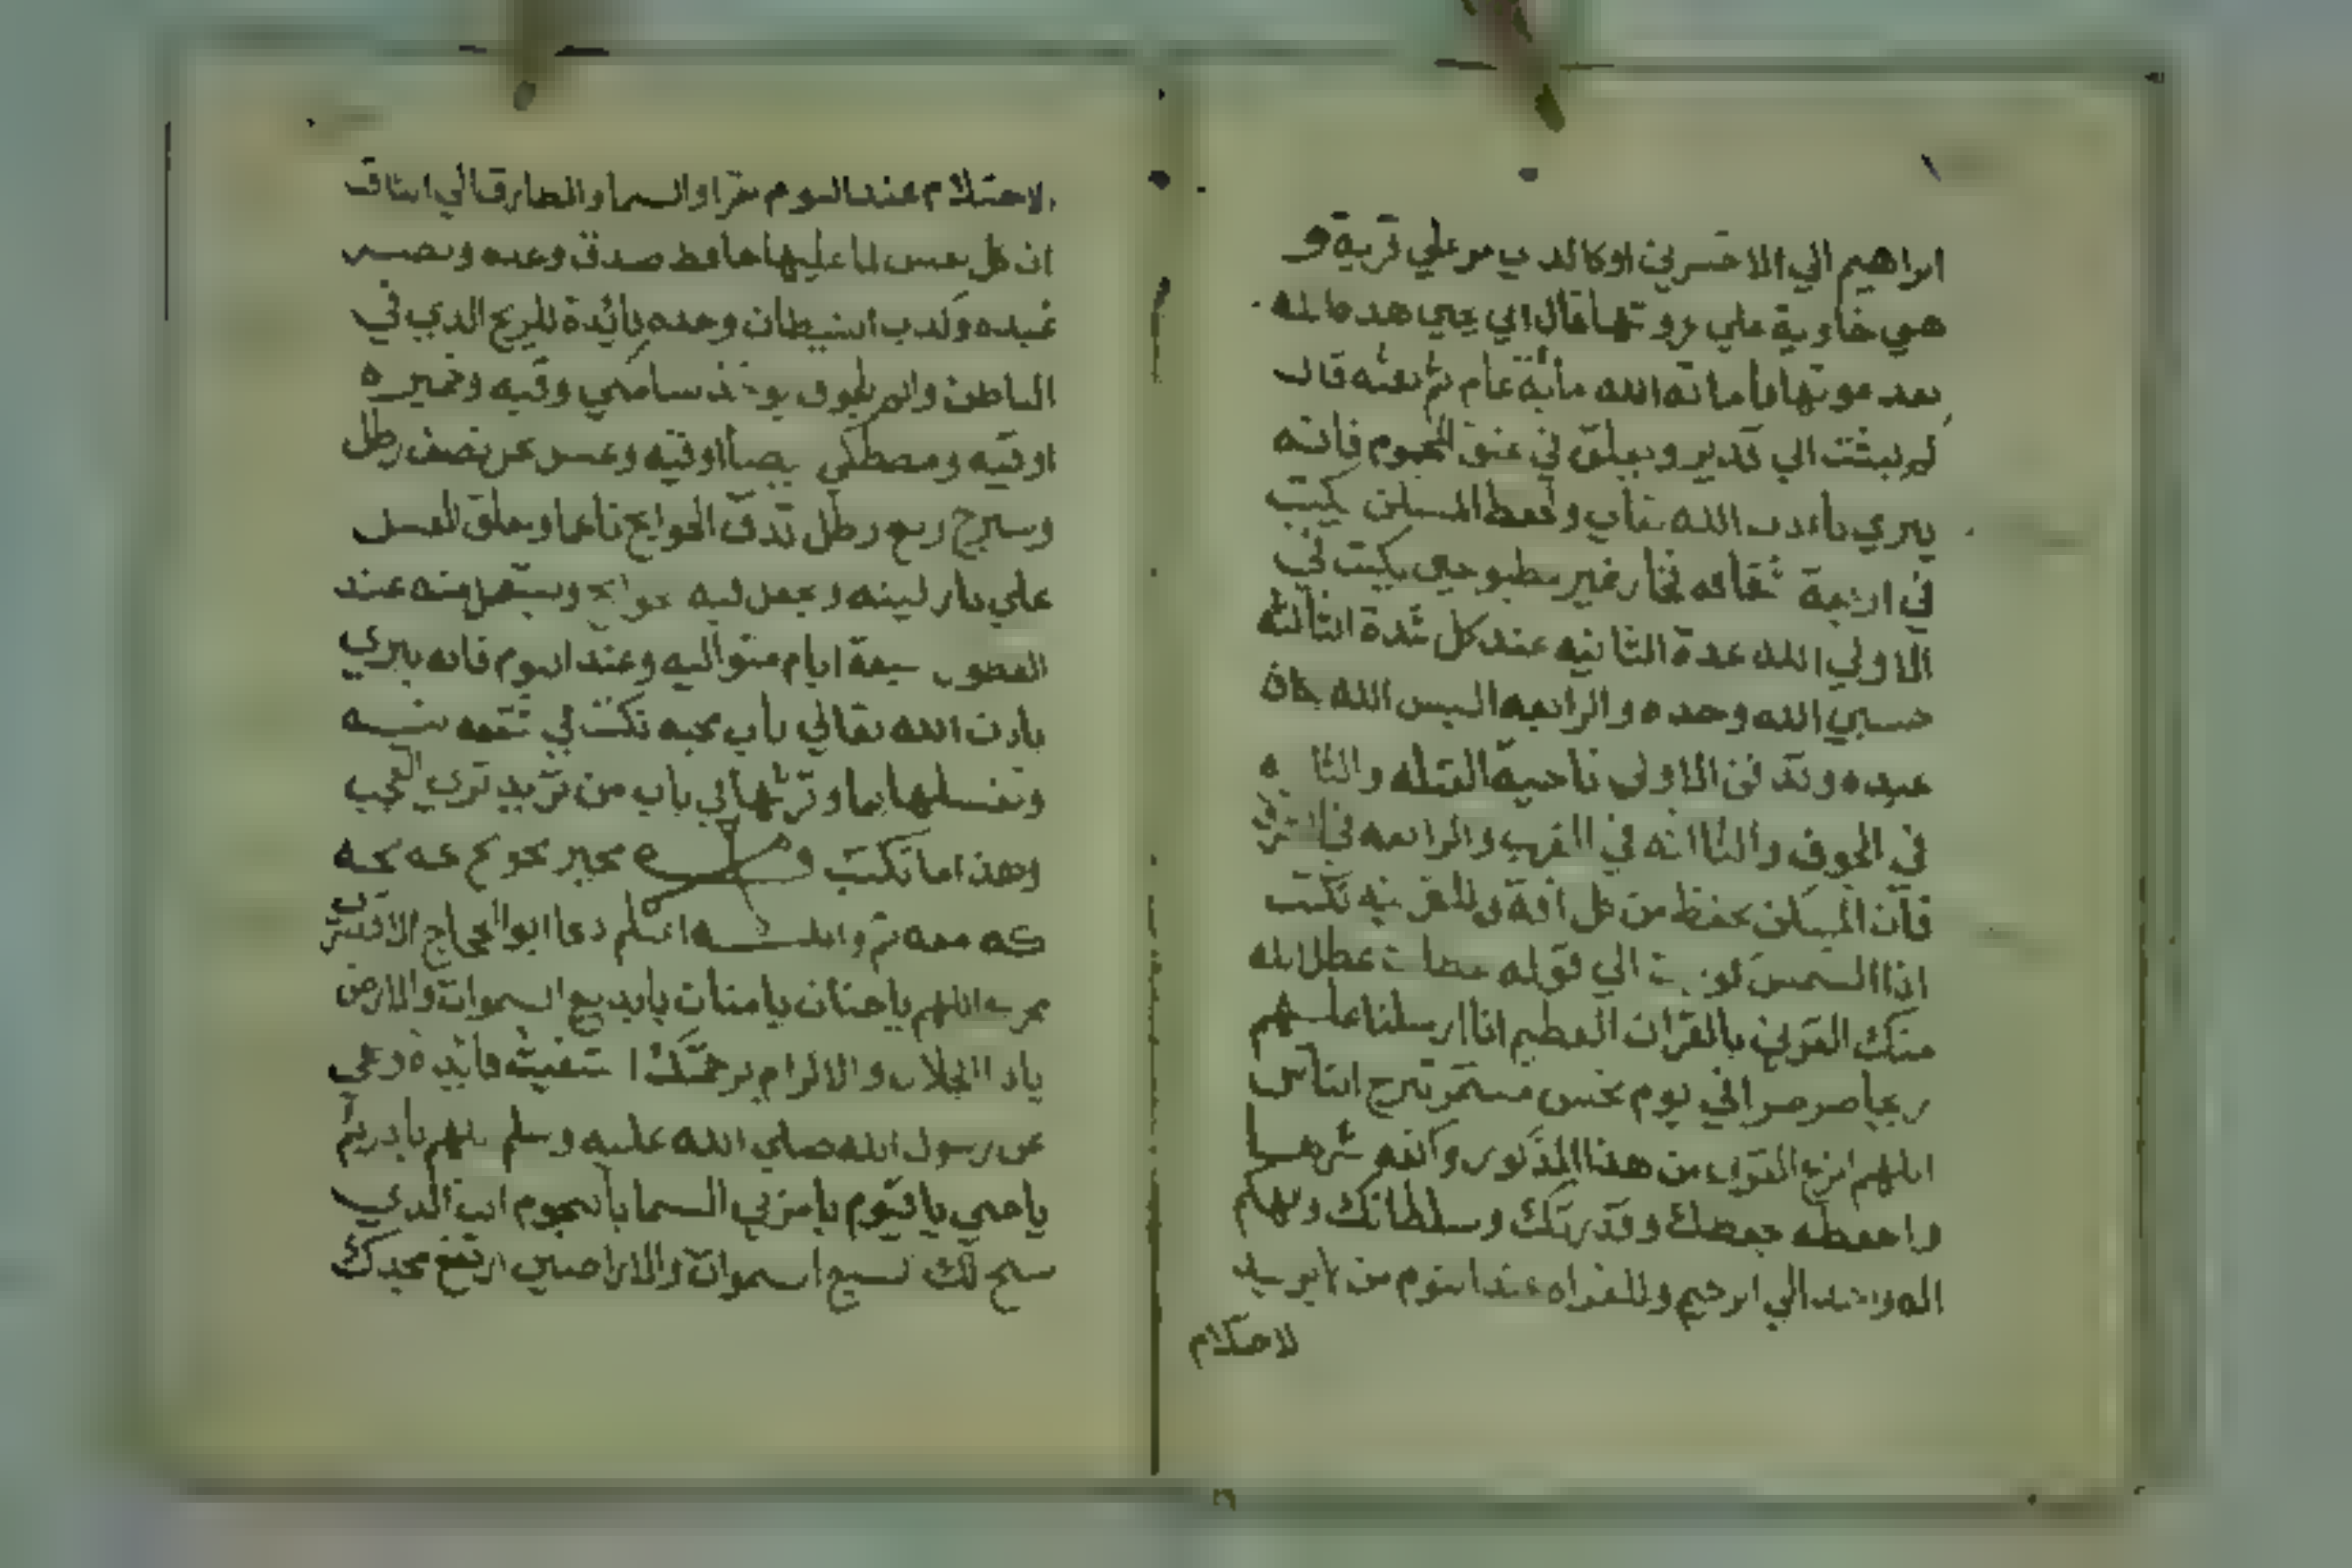 ابراهيم الي الاخسرين اوكالدي مر علي قرية و
هي خاوية علي عروشها قال اني يحي هده الله
بعد موتها فأماته الله مأية عام ثم بعثه قال
كم لبثت الي قدير ويعلق في عنق المحموم فانه
يبري بأدن الله تعالي ولحفظ المسكن يكتب
في اربعة شقافه فخار غير مطبوخين يكتب في
الاولي الله عدة الثانيه عند كل شدة الثالثة
حسبي الله وحده والرابعه اليس الله بكاف
عبده وتدفن الاولي ناحية القبله والثا
في الجوف والثالثه في الغرب والرابعه في الشرق
فأن المسكن يحفظ من كل افة وللقرينه تكتب
اذا الشمس كورت الي قوله عطلت عطل الله
عنك القرين بالقرآن العظيم انا ارسلنا عليهم
ريحا صرصرا في يوم نحس مستمر تنزع الناس
اللهم انزع القرين من هذا المذكور واكفه شرها
واحفظه بحفظك وقدرتك وسلطانك والهكم
اله واحد الي الرحيم وللقراه عند النوم من لا يريد
لاحتلام
الاحتلام عند النوم يقرا والسما والطارق الي
ان كل نفس لما عليها حافظ صدق وعده ونصر
عبده وكدب الشيطان وحده فائدة للريح الدي في
الباطن يوخذ سنامكي وقيه وخميره
اوقيه ومصطكي بيضا اوقيه وعسل نحل نصف رطل
وسيرج ربع رطل تدق الحوايج ناعما ويعلق العسل
علي نار لينه ويجعل فيه حوايج ويستعمل منه عند
الفطور سبعة ايام متواليه وعند النوم فانه يبري
بادن الله تعالي باب محبه تكتب في
وتغسلها بما وترشها في باب من تريد تري العجب
وهذا ما تكتب
ثم والله اعلم دعا ابو الحجاج الاقصري
مجرب اللهم ياحنان يامنان يابديع السموات والارض
ياد الجلال والاكرام برحمتك استغيث فايدة وعي
عن رسول الله صلي الله عليه وسلم
ياحي ياقيوم يامزين السما بالنجوم انت الدي
سبح لك السبع اسموات والاراضين ارتفع مجدك